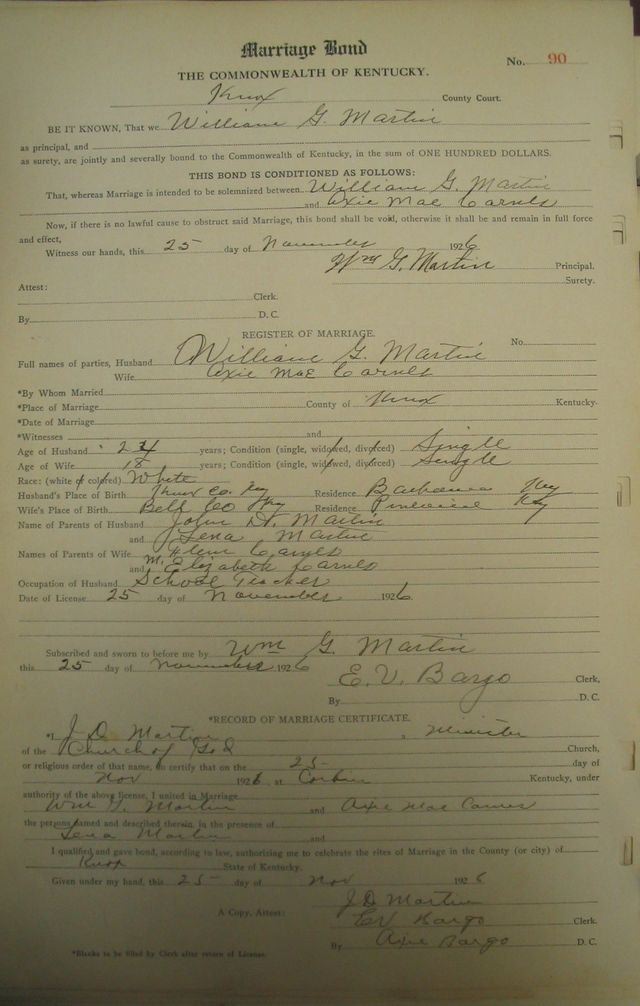 Marriage Bond
No. 90
THE COMMONWEALTH OF KENTUCKY.
Knox County Court.
BE IT KNOWN, That we William G. Martin
as principal, and
as surety, are jointly and severally bound to the Commonwealth of Kentucky, in the sum of ONE HUNDRED DOLLARS.
THIS BOND IS CONDITIONED AS FOLLOWS:
That, whereas Marriage is intended to be solemnized between William G. Martin
and Axie Mae Carnes
Now, if there is no lawful cause to obstruct said Marriage, this bond shall be void, otherwise it shall be and remain in full force
and effect,
Witness our hands, this 25 day of November 1926
Wm G. Martin Principal.
Surety.
Attest:
Clerk.
By D. C.
REGISTER OF MARRIAGE.
No.
Full names of parties, Husband William G. Martin
Wife Axie Mae Carnes
*By Whom Married
*Place of Marriage County of Knox Kentucky.
*Date of Marriage
*Witnesses and
Age of Husband years; Condition (single, widowed, divorced) Single
Age of Wife 18 years; Condition (single, widowed, divorced) Single
Race: (white or colored) White
Husband's Place of Birth Knox Co. Ky Residence Ky
Wife's Place of Birth Bell Co Ky Residence Pineville Ky
Name of Parents of Husband John D. Martin
and Lena Martin
Names of Parents of Wife Carnes
and M. Elizabeth Carnes
Occupation of Husband School Teacher
Date of License 25 day of November 1926
Subscribed and sworn to before me by Wm G. Martin
this 25 day of November 1926
E. V. Bargo Clerk,
By D. C.
*RECORD OF MARRIAGE CERTIFICATE.
*I J D Martin a Minister
of the Church of God Church,
or religious order of that name, do certify that on the 25 day of
Nov 1926 at Corbin Kentucky, under
authority of the above license, I united in Marriage
Wm G. Martin and Axie Mae Carnes
the persons named and described therein, in the presence of
Lena Martin and
I qualified and gave bond, according to law, authorizing me to celebrate the rites of Marriage in the County (or city) of
Knox State of Kentucky.
Given under my hand, this 25 day of Nov 1926
J D Martin
A Copy, Attest: EV Bargo Clerk.
By Axie Bargo D. C.
*Blanks to be filled by Clerk after return of License.